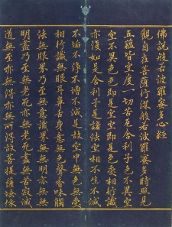 佛說般若波羅蜜多心經
觀自在菩薩行深般若波羅蜜多時照見
五蘊皆空度一切苦厄舍利子色不異空
空不異色色即是空空即是色受想行識
亦復如是舍利子是諸法空相不生不滅
不垢不淨不增不減是故空中無色無受
想行識無眼耳鼻舌身意無色聲香味觸
法無眼界乃至無意識界無無明亦無無
明盡乃至無老死亦無老死盡無苦集滅
道無智亦無得以無所得故菩提薩埵依